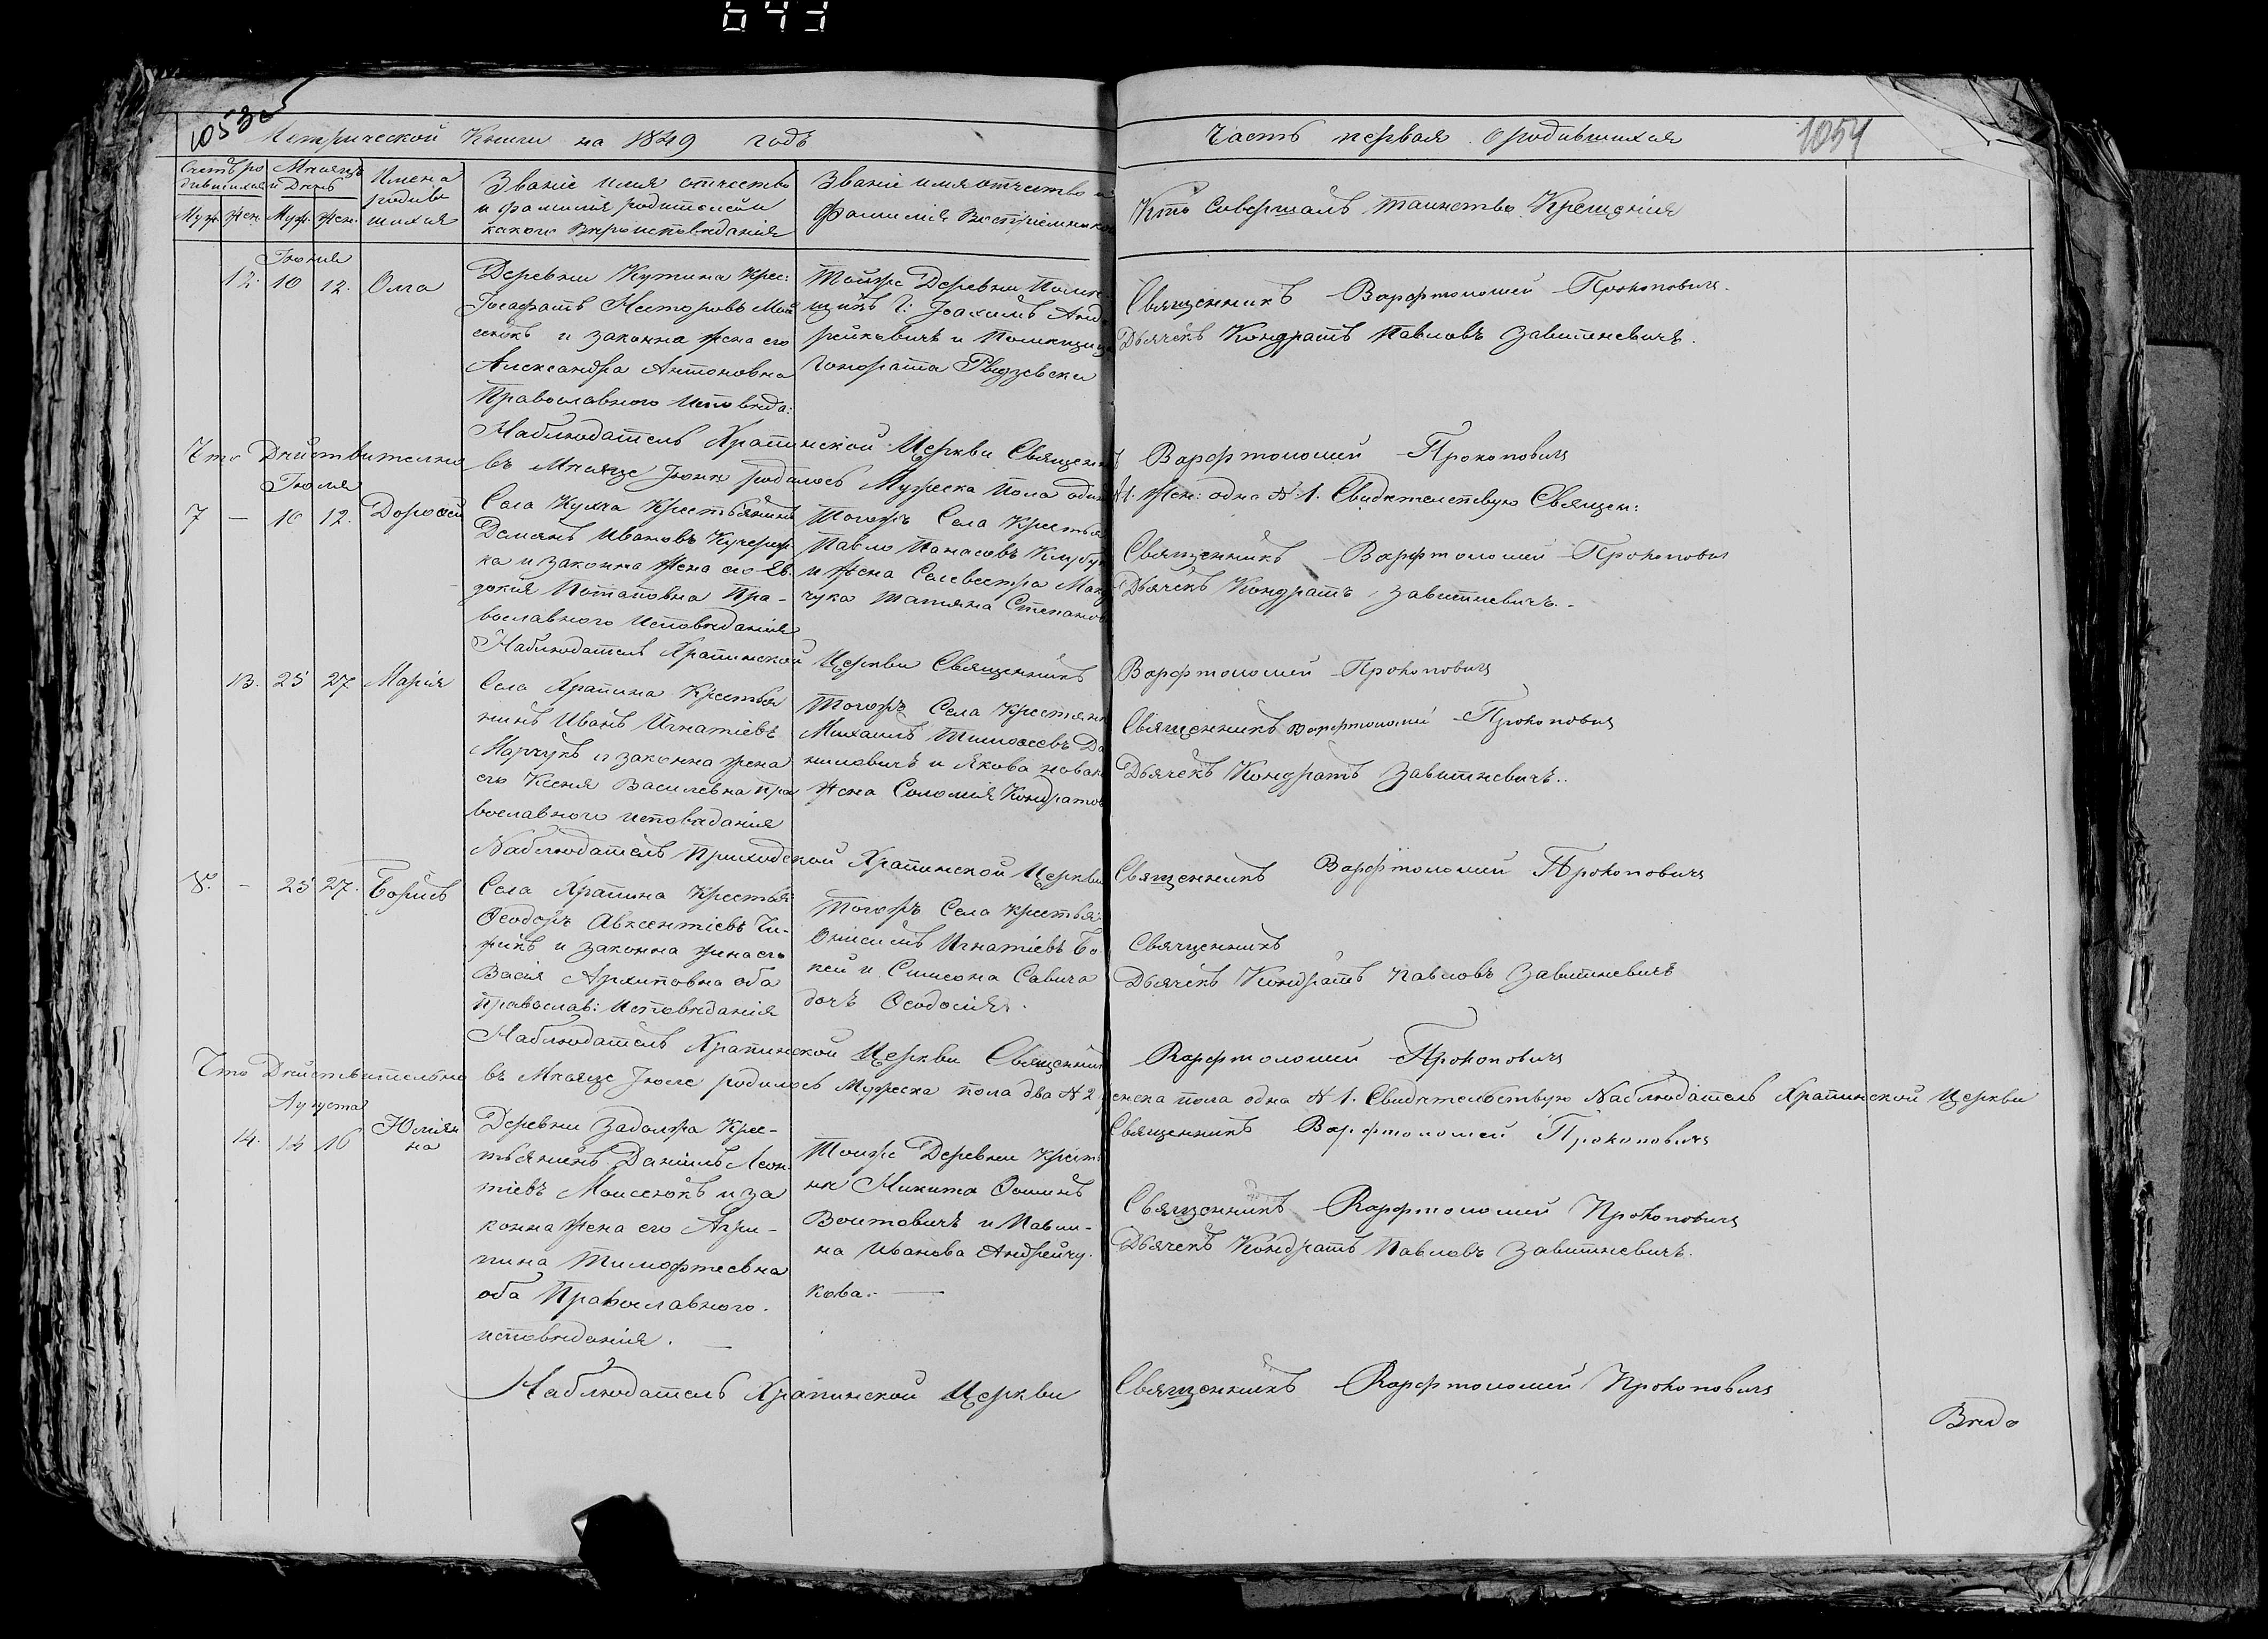 643
1053
Метрической Книги на 1849 годъ
Часть первая о родившихся
1054
Счетъ ро
дившихся
Мѣсяцъ
и День
Имена
родив
шихся
Званіе имя отчество
и фамилія родителей и
какого Вѣроисповѣданія
Званіе имя отчество и
фамилія Воспріемников
Кто Совершалъ таинство Крещенія
Муж. Жен. Муж. Жен.
Іюня
12. 10 12. Олга
Деревни Кутина Крес:
Іосафатъ Несторовъ Мои
сеюкъ и законна жена его
Александра Антоновна
Православного Исповѣда:
Тойже Деревни Помѣ
щикъ Г. Іоахимъ Анд
рейковичъ и Помѣщица
Гонората
Священникъ Варфтоломей Прокоповичъ
Дьячекъ Кондратъ Павловъ Завитневичъ.
Наблюдатель Храпинской Церкви Священни Варфтоломей Прокоповичъ
Что Дѣйствительно въ Мѣсяце Іюнѣ родилось Мужеска Пола один №1. Жен: одна №1. Свидѣтелствую Священ:
Іюля
7 — 10 12. Дороѳей
Села Кулча Крестьянинъ
Демянъ Ивановъ
ка и законна Жена его Ев
докия Потаповна Пра-
вославного Исповѣданія
Тогожъ Села Крестья
Павло Панасовъ
и Жена Селвестра
чука Татяна Степанов
Священникъ Варфтоломей Прокопович
Дьячекъ Кондратъ Завитневичъ.
Наблюдатель Храпинской Церкви Священникъ Варфтоломей Прокоповичъ
13. 25 27 Марія
Села Храпина Крестья
нинъ Иванъ Игнатіевъ
Марчукъ и законна жена
его Ксенія Василевна пра
вославного исповѣданія
Тогожъ Села Крестяни
Михаилъ Тимоѳеевъ Да
ниловичъ и Якова
Жена Соломія Кондратов
Священникъ Варфтоломей Прокоповичъ
Дьячекъ Кондратъ Завитневичъ.
Наблюдатель Приходской Храпинской Церкви Священникъ Варфтоломей Прокоповичъ
8. — 25 27. Борисъ
Села Храпина Крестья
Ѳеодоръ Авксентіевъ Чи-
рикъ и законна жена его
Васія Архиповна оба
Православ: Исповѣданія
Тогожъ Села Крестья
Онисимъ Игнатіевъ Бо
кей и Симеона Савича
дочь Ѳеодосія.
Священникъ
Дьячекъ Кондратъ Павловъ Завитневичъ
Наблюдатель Храпинской Церкви Священник Варфтоломей Прокоповичъ
Что Дѣйствительно въ Мѣсяце Іюле родилось Мужеска пола два №2 женска пола одна №1. Свидѣтельствую Наблюдатель Храпинской Церкви
Священникъ Варфтоломей Прокоповичъ
Августа
14. 14 16 Юлиян
на
Деревни Задолжа Крес-
тьянинъ Даніилъ Леон
тіевъ Моисеюкъ и за
конна жена его Агри-
пина Тимофтеевна
оба Православного
исповѣданія.
Тоиже Деревни Кресть
нн Никита Ѳоминъ
Воитовичъ и Павли-
на Иванова Андрейчу
кова.
Священникъ Варфтоломей Прокоповичъ
Дьячекъ Кондратъ Павловъ Завитневичъ.
Наблюдатель Храпинской Церкви Священникъ Варфтоломей Прокоповичъ